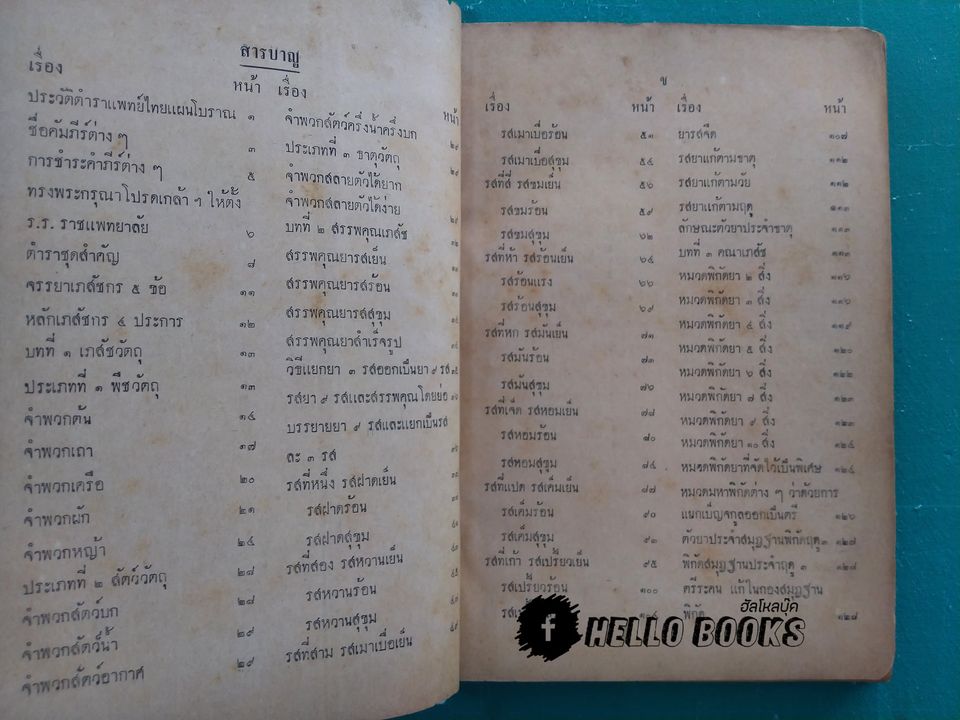 สารบาญ
เรื่อง
หน้า
ประวัติตำราแพทย์ไทยแผนโบราณ ๑
ชื่อคัมภีร์ต่าง ๆ ๓
การชำระคำภีร์ต่าง ๆ ๕
ทรงพระกรุณาโปรดเกล้า ฯ ให้ตั้ง
ร.ร. ราชแพทยาลัย ๖
ตำราชุดสำคัญ ๘
จรรยาเภสัชกร ๕ ข้อ ๑๑
หลักเภสัชกร ๔ ประการ ๑๒
บทที่ ๑ เภสัชวัตถุ ๑๓
ประเภทที่ ๑ พืชวัตถุ ๑๓
จำพวกต้น ๑๔
จำพวกเถา ๑๗
จำพวกเครือ ๒๐
จำพวกผัก ๒๑
จำพวกหญ้า ๒๔
ประเภทที่ ๒ สัตว์วัตถุ ๒๘
จำพวกสัตว์บก ๒๘
จำพวกสัตว์น้ำ ๒๙
จำพวกสัตว์อากาศ ๒๙
เรื่อง
หน้า
จำพวกสัตว์ครึ่งน้ำครึ่งบก ๒๙
ประเภทที่ ๓ ธาตุวัตถุ ๒๙
จำพวกสลายตัวได้ยาก
จำพวกสลายตัวได้ง่าย
บทที่ ๒ สรรพคุณเภสัช
สรรพคุณยารสเย็น
สรรพคุณยารสร้อน
สรรพคุณยารสสุขุม
สรรพคุณยาสำเร็จรูป
วิธีแยกยา ๓ รสออกเป็นยา ๙ รส
รสยา ๙ รสและสรรพคุณโดยย่อ
บรรยายยา ๙ รสและแยกเป็นรส
ละ ๓ รส
รสที่หนึ่ง รสฝาดเย็น
รสฝาดร้อน
รสฝาดสุขุม
รสที่สอง รสหวานเย็น
รสหวานร้อน
รสหวานสุขุม
รสที่สาม รสเมาเบื่อเย็น
ข
เรื่อง
หน้า
รสเมาเบื่อร้อน ๕๑
รสเมาเบื่อสุขุม ๕๔
รสที่สี่ รสขมเย็น ๕๖
รสขมร้อน ๕๙
รสขมสุขุม ๖๒
รสที่ห้า รสร้อนเย็น ๖๔
รสร้อนแรง ๖๖
รสร้อนสุขุม ๖๙
รสที่หก รสมันเย็น ๗๑
รสมันร้อน ๗๓
รสมันสุขุม ๗๖
รสที่เจ็ด รสหอมเย็น ๗๘
รสหอมร้อน ๘๐
รสหอมสุขุม ๘๔
รสที่แปด รสเค็มเย็น ๘๗
รสเค็มร้อน ๙๐
รสเค็มสุขุม ๙๓
รสที่เก้า รสเปรี้ยวเย็น ๙๕
รสเปรี้ยวร้อน ๑๐๐
เรื่อง
หน้า
ยารสจืด ๑๐๗
รสยาแก้ตามธาตุ ๑๑๒
รสยาแก้ตามวัย ๑๑๒
รสยาแก้ตามฤดู ๑๑๓
ลักษณะตัวยาประจำธาตุ ๑๑๓
บทที่ ๓ คณาเภสัช ๑๑๓
หมวดพิกัดยา ๒ สิ่ง ๑๑๖
หมวดพิกัดยา ๓ สิ่ง ๑๑๖
หมวดพิกัดยา ๔ สิ่ง ๑๑๙
หมวดพิกัดยา ๕ สิ่ง ๑๒๐
หมวดพิกัดยา ๖ สิ่ง ๑๒๒
หมวดพิกัดยา ๗ สิ่ง ๑๒๓
หมวดพิกัดยา ๙ สิ่ง
หมวดพิกัดยา ๑๐ สิ่ง ๑๒๔
หมวดพิกัดยาที่จัดไว้เป็นพิเศษ ๑๒๔
หมวดมหาพิกัดต่าง ๆ ว่าด้วยการ
แยกเบ็ญจกูลออกเป็นตรี ๑๒๖
ตัวยาประจำสมุฏฐานพิกัดฤดู ๓ ๑๒๗
พิกัดสมุฏฐานประจำฤดู ๓ ๑๒๘
ตรีระคน แก้ในกองสมุฏฐาน
พิกัด ๑๒๘
ฮัลโหลบุ๊ค
HELLO BOOKS